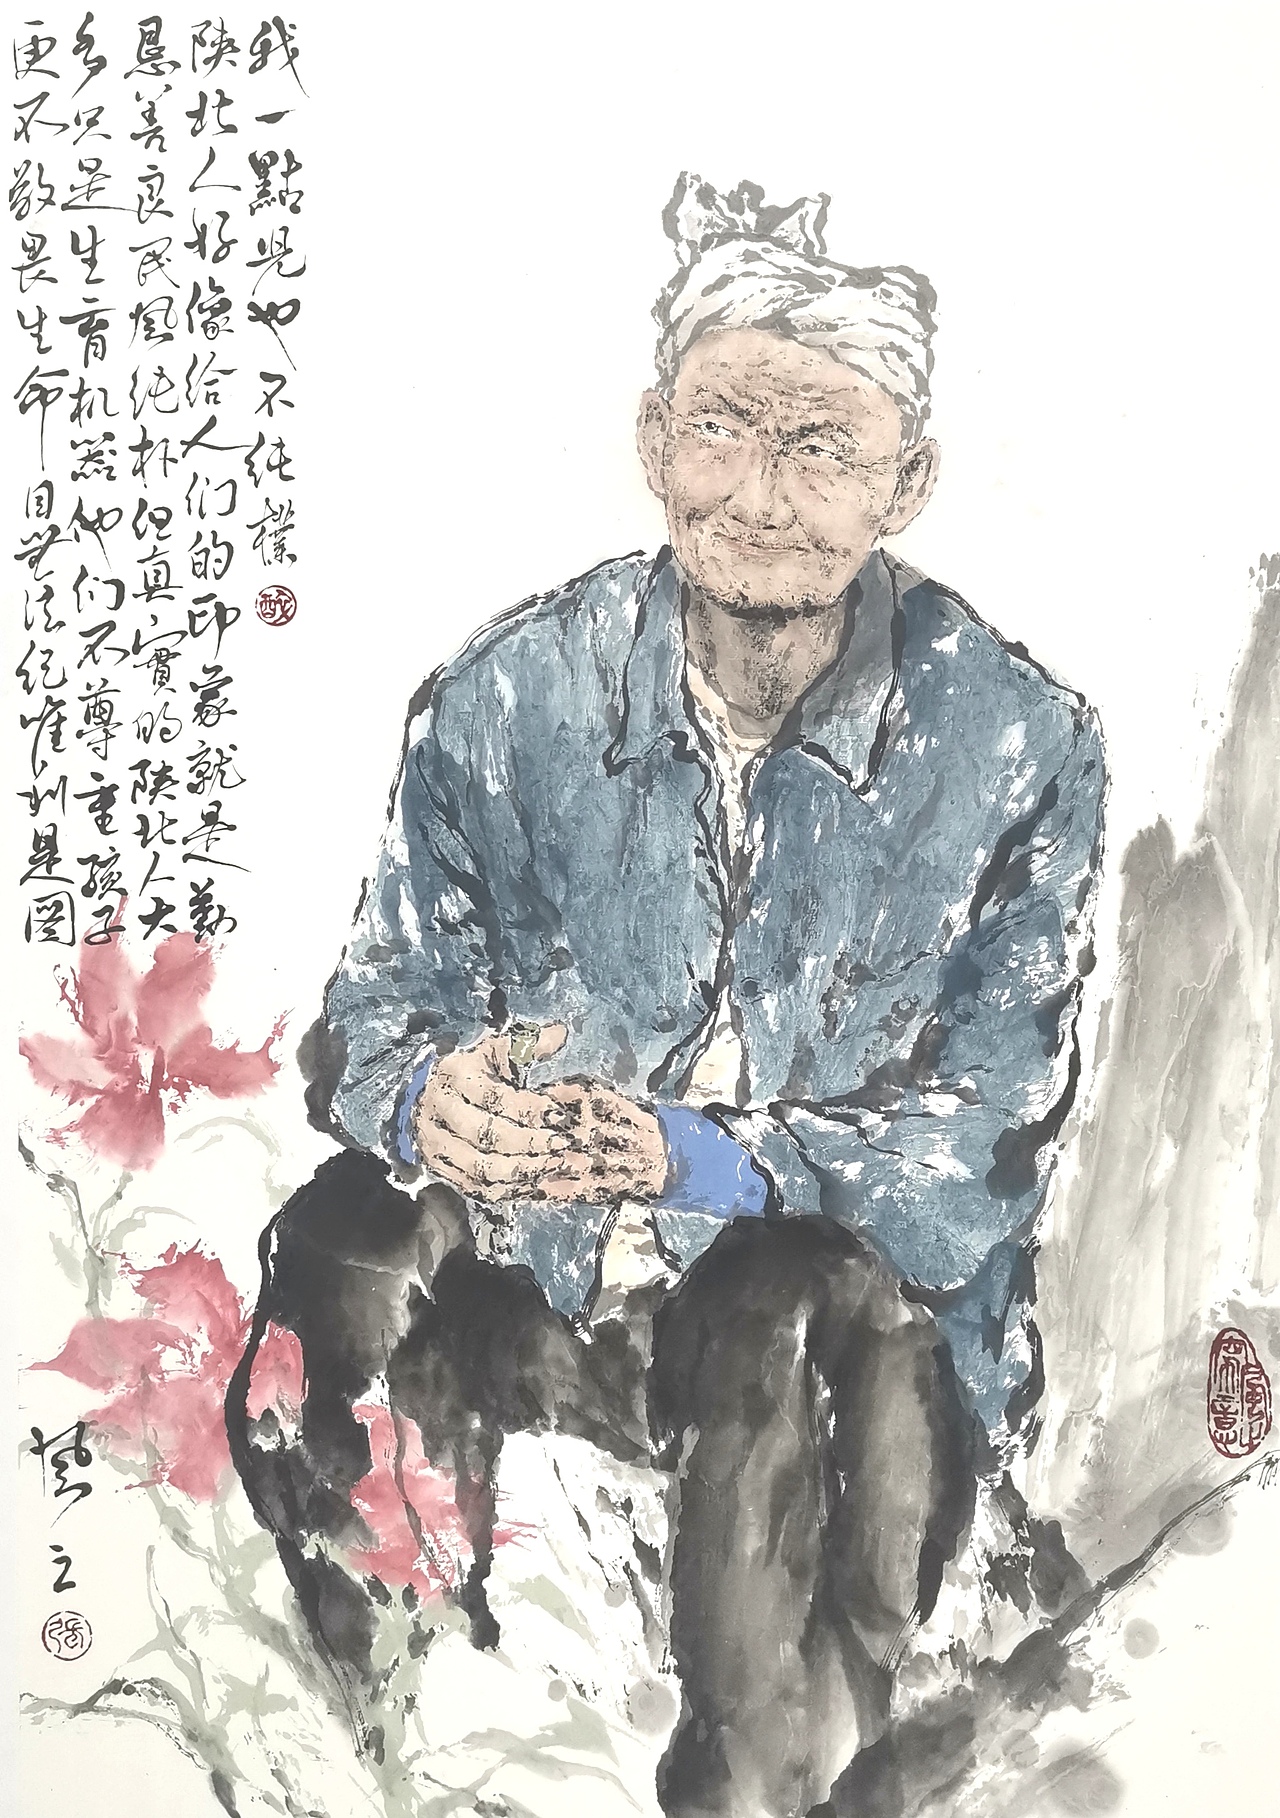 我一點児也不纯樸
陕北人好像给人们的印蒙就是勤
恳善良民風纯朴但真實的陕北人大
多只是生育机器他们不尊重孩子
更不敬畏生命目無法纪唯利是图
风之